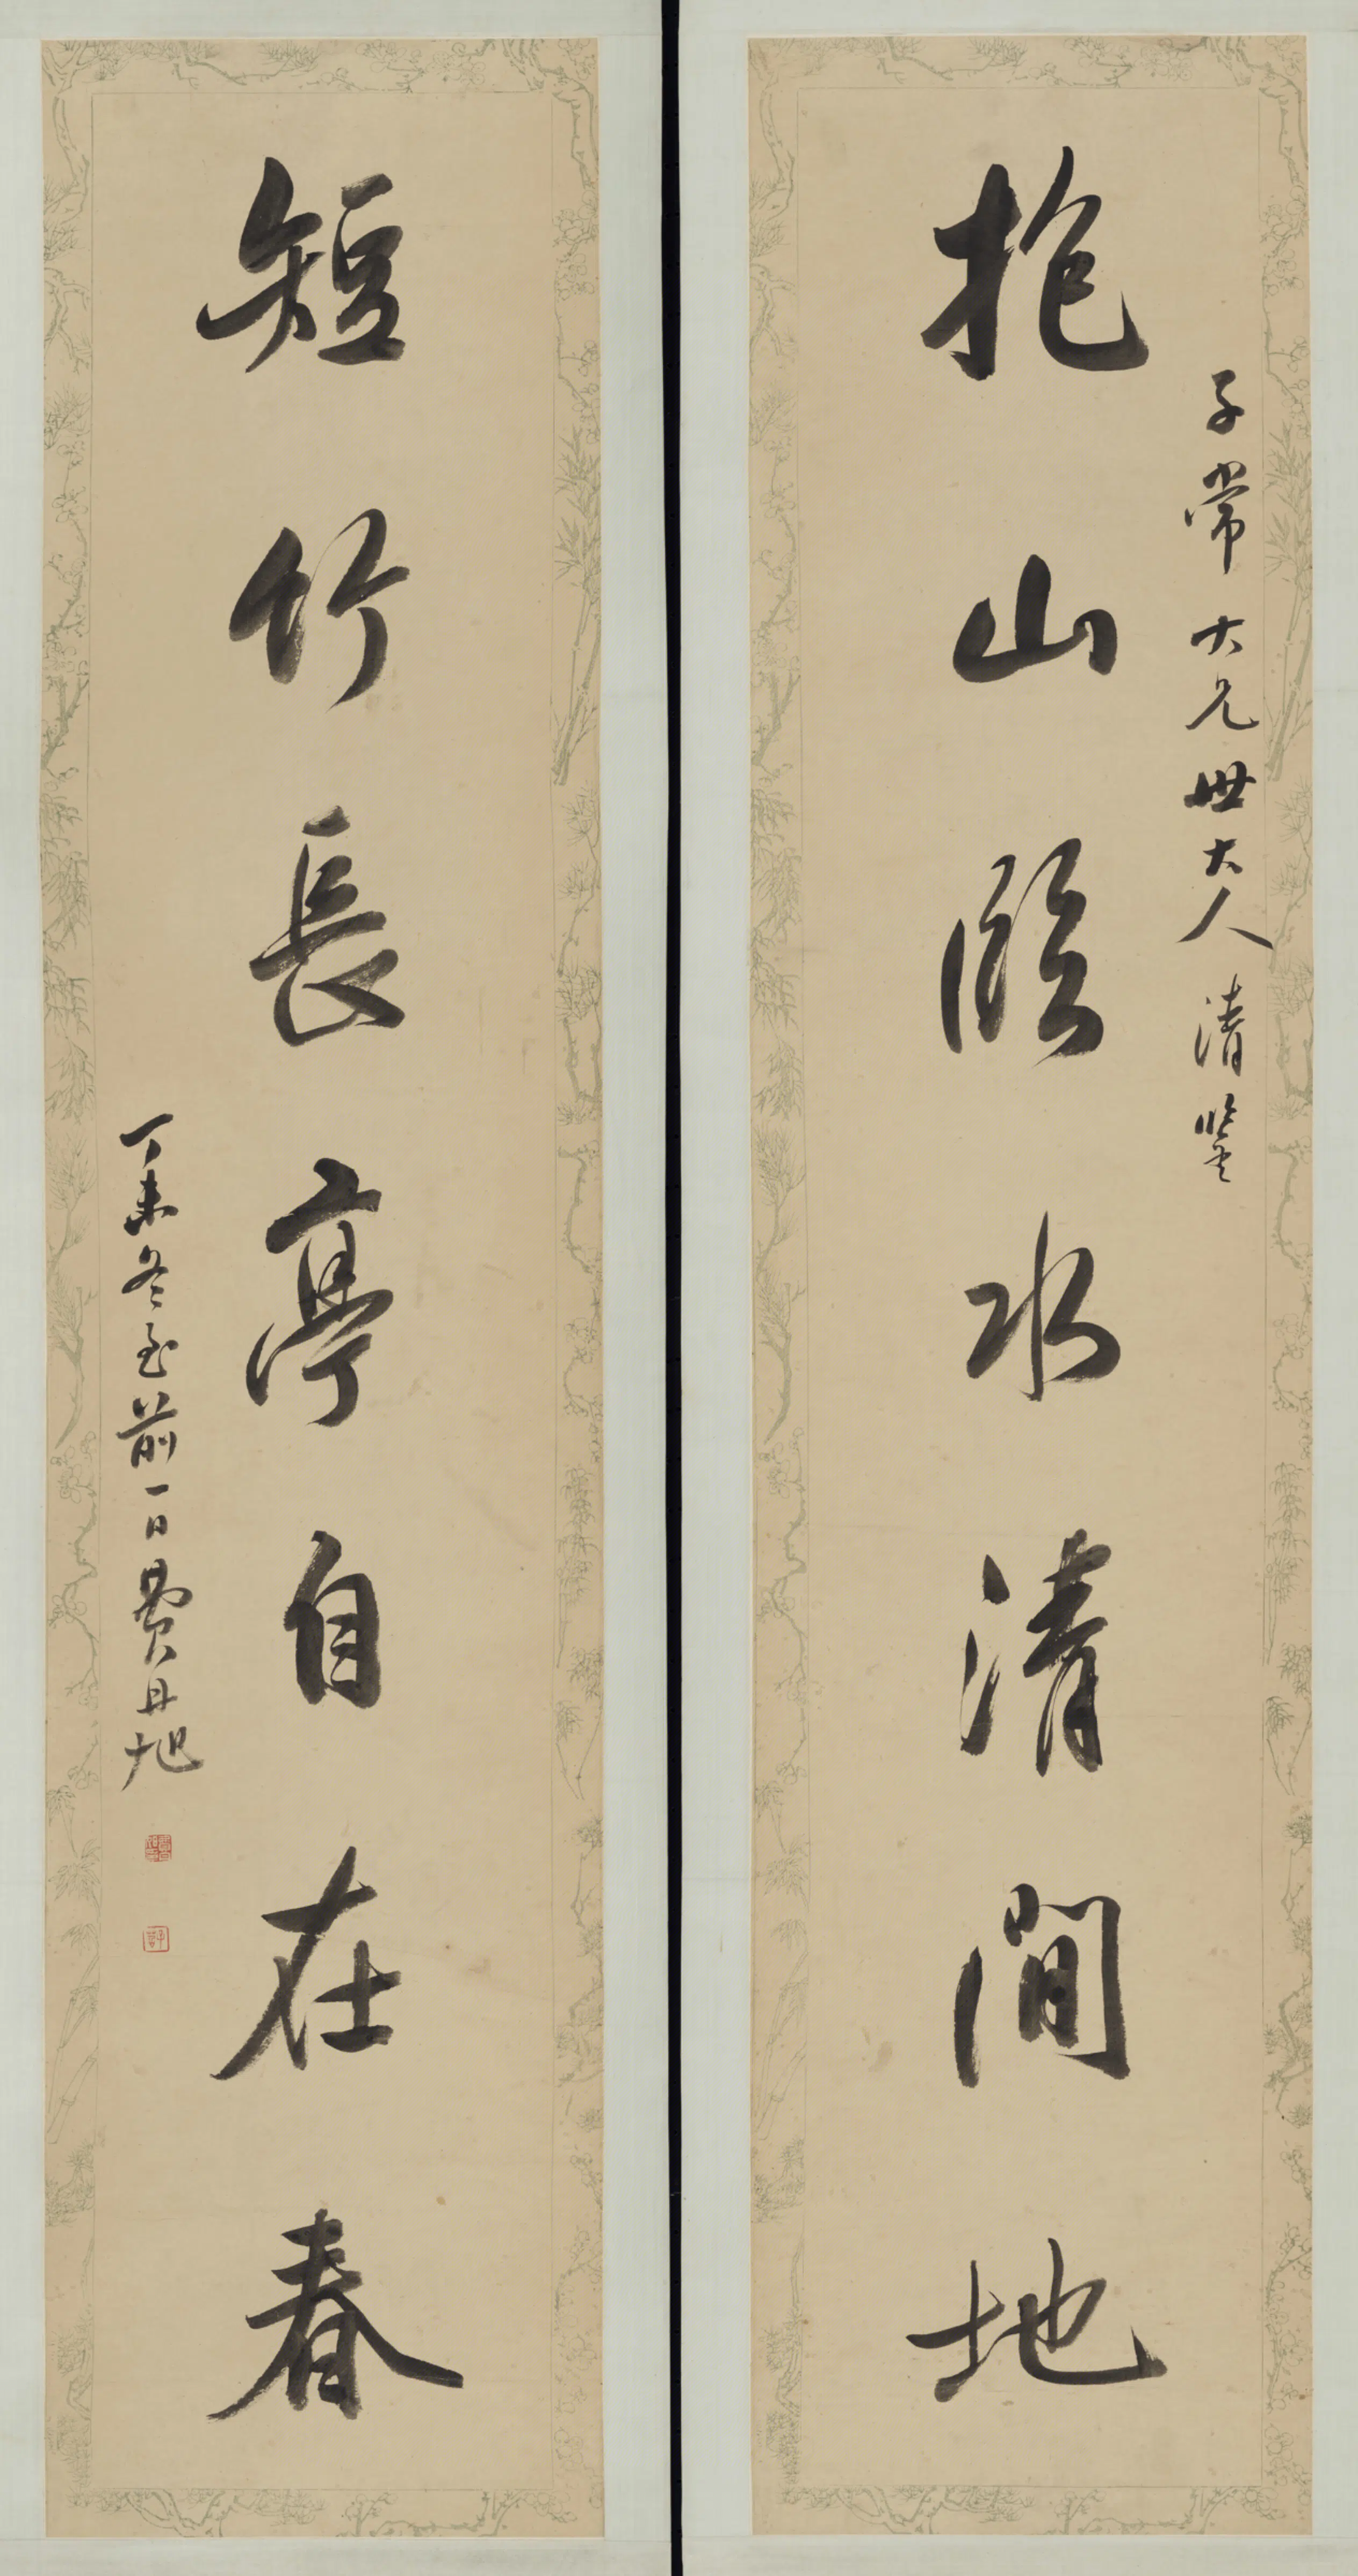 子常大兄世大人清鑒
抱山臨水清閒地
短竹長亭自在春
丁未冬至前一日費丹旭